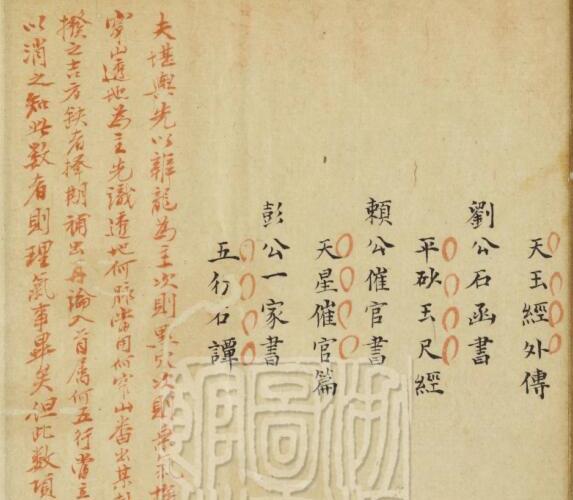 天玉經外傳
劉公石函書
平砂玉尺經
賴公催官書
天星催官篇
彭公一家書
五行石譚
夫堪輿先以辨龍為主次則點穴次則乘氣
穿山透地為主先識透地何脉當用何穿山當出某
撥之吉方缺者擇期補出再論入首屬何五行當立
以消之知此数者則理氣事畢矣但此数項